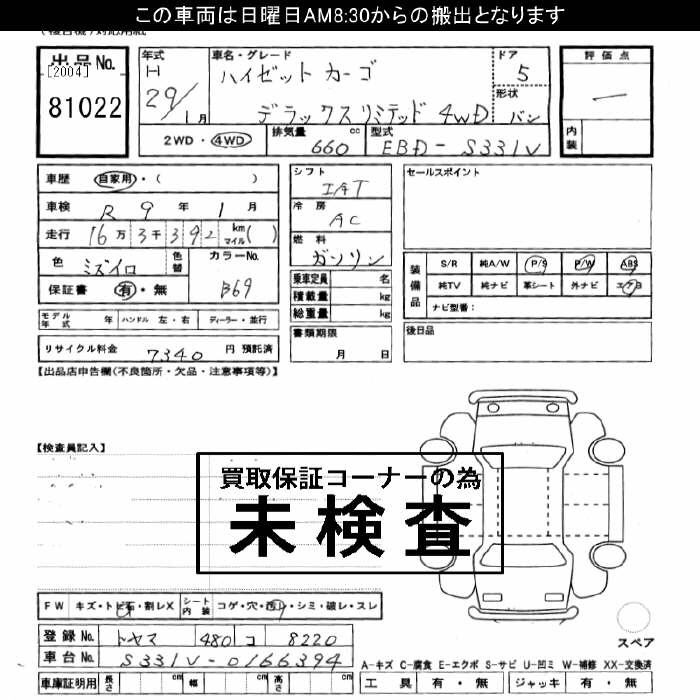 この車両は日曜日AM8:30からの搬出となります
出品No.
[2004]
81022
年式
H
29/1月
車名・グレード
ハイゼット カーゴ
デラックスリミテッド 4WD
ドア
5
形状
バン
2WD・4WD
排気量
660 cc
型式
EBD-S331V
評価点
―
内装
車歴 自家用・( )
車検 R 9 年 1 月
走行 16万3千392 km マイル( )
色 ミズイロ
色替
カラーNo.
B69
保証書 有・無
モデル年式 年 ハンドル 左・右 ディーラー・並行
リサイクル料金 7340 円 預託済
シフト
IAT
冷房
AC
燃料
ガソリン
乗車定員 名
積載量 kg
総重量 kg
書類期限
月 日
セールスポイント
装備品
S/R 純A/W P/S P/W ABS
純TV 純ナビ 革シート 外ナビ エアB
ナビ型番:
後日品
【出品店申告欄(不良箇所・欠品・注意事項等)】
【検査員記入】
買取保証コーナーの為
未検査
FW キズ・トビ石・割レX
シート内装 コゲ・穴・汚レ・シミ・破レ・スレ
登録No. トヤマ 480 コ 8220
車台No. S331V-0166394
車庫証明用 長さ cm 幅 cm 高さ cm
スペア
A-キズ C-腐食 E-エクボ S-サビ U-凹ミ W-補修 XX-交換済
工具 有・無 ジャッキ 有・無